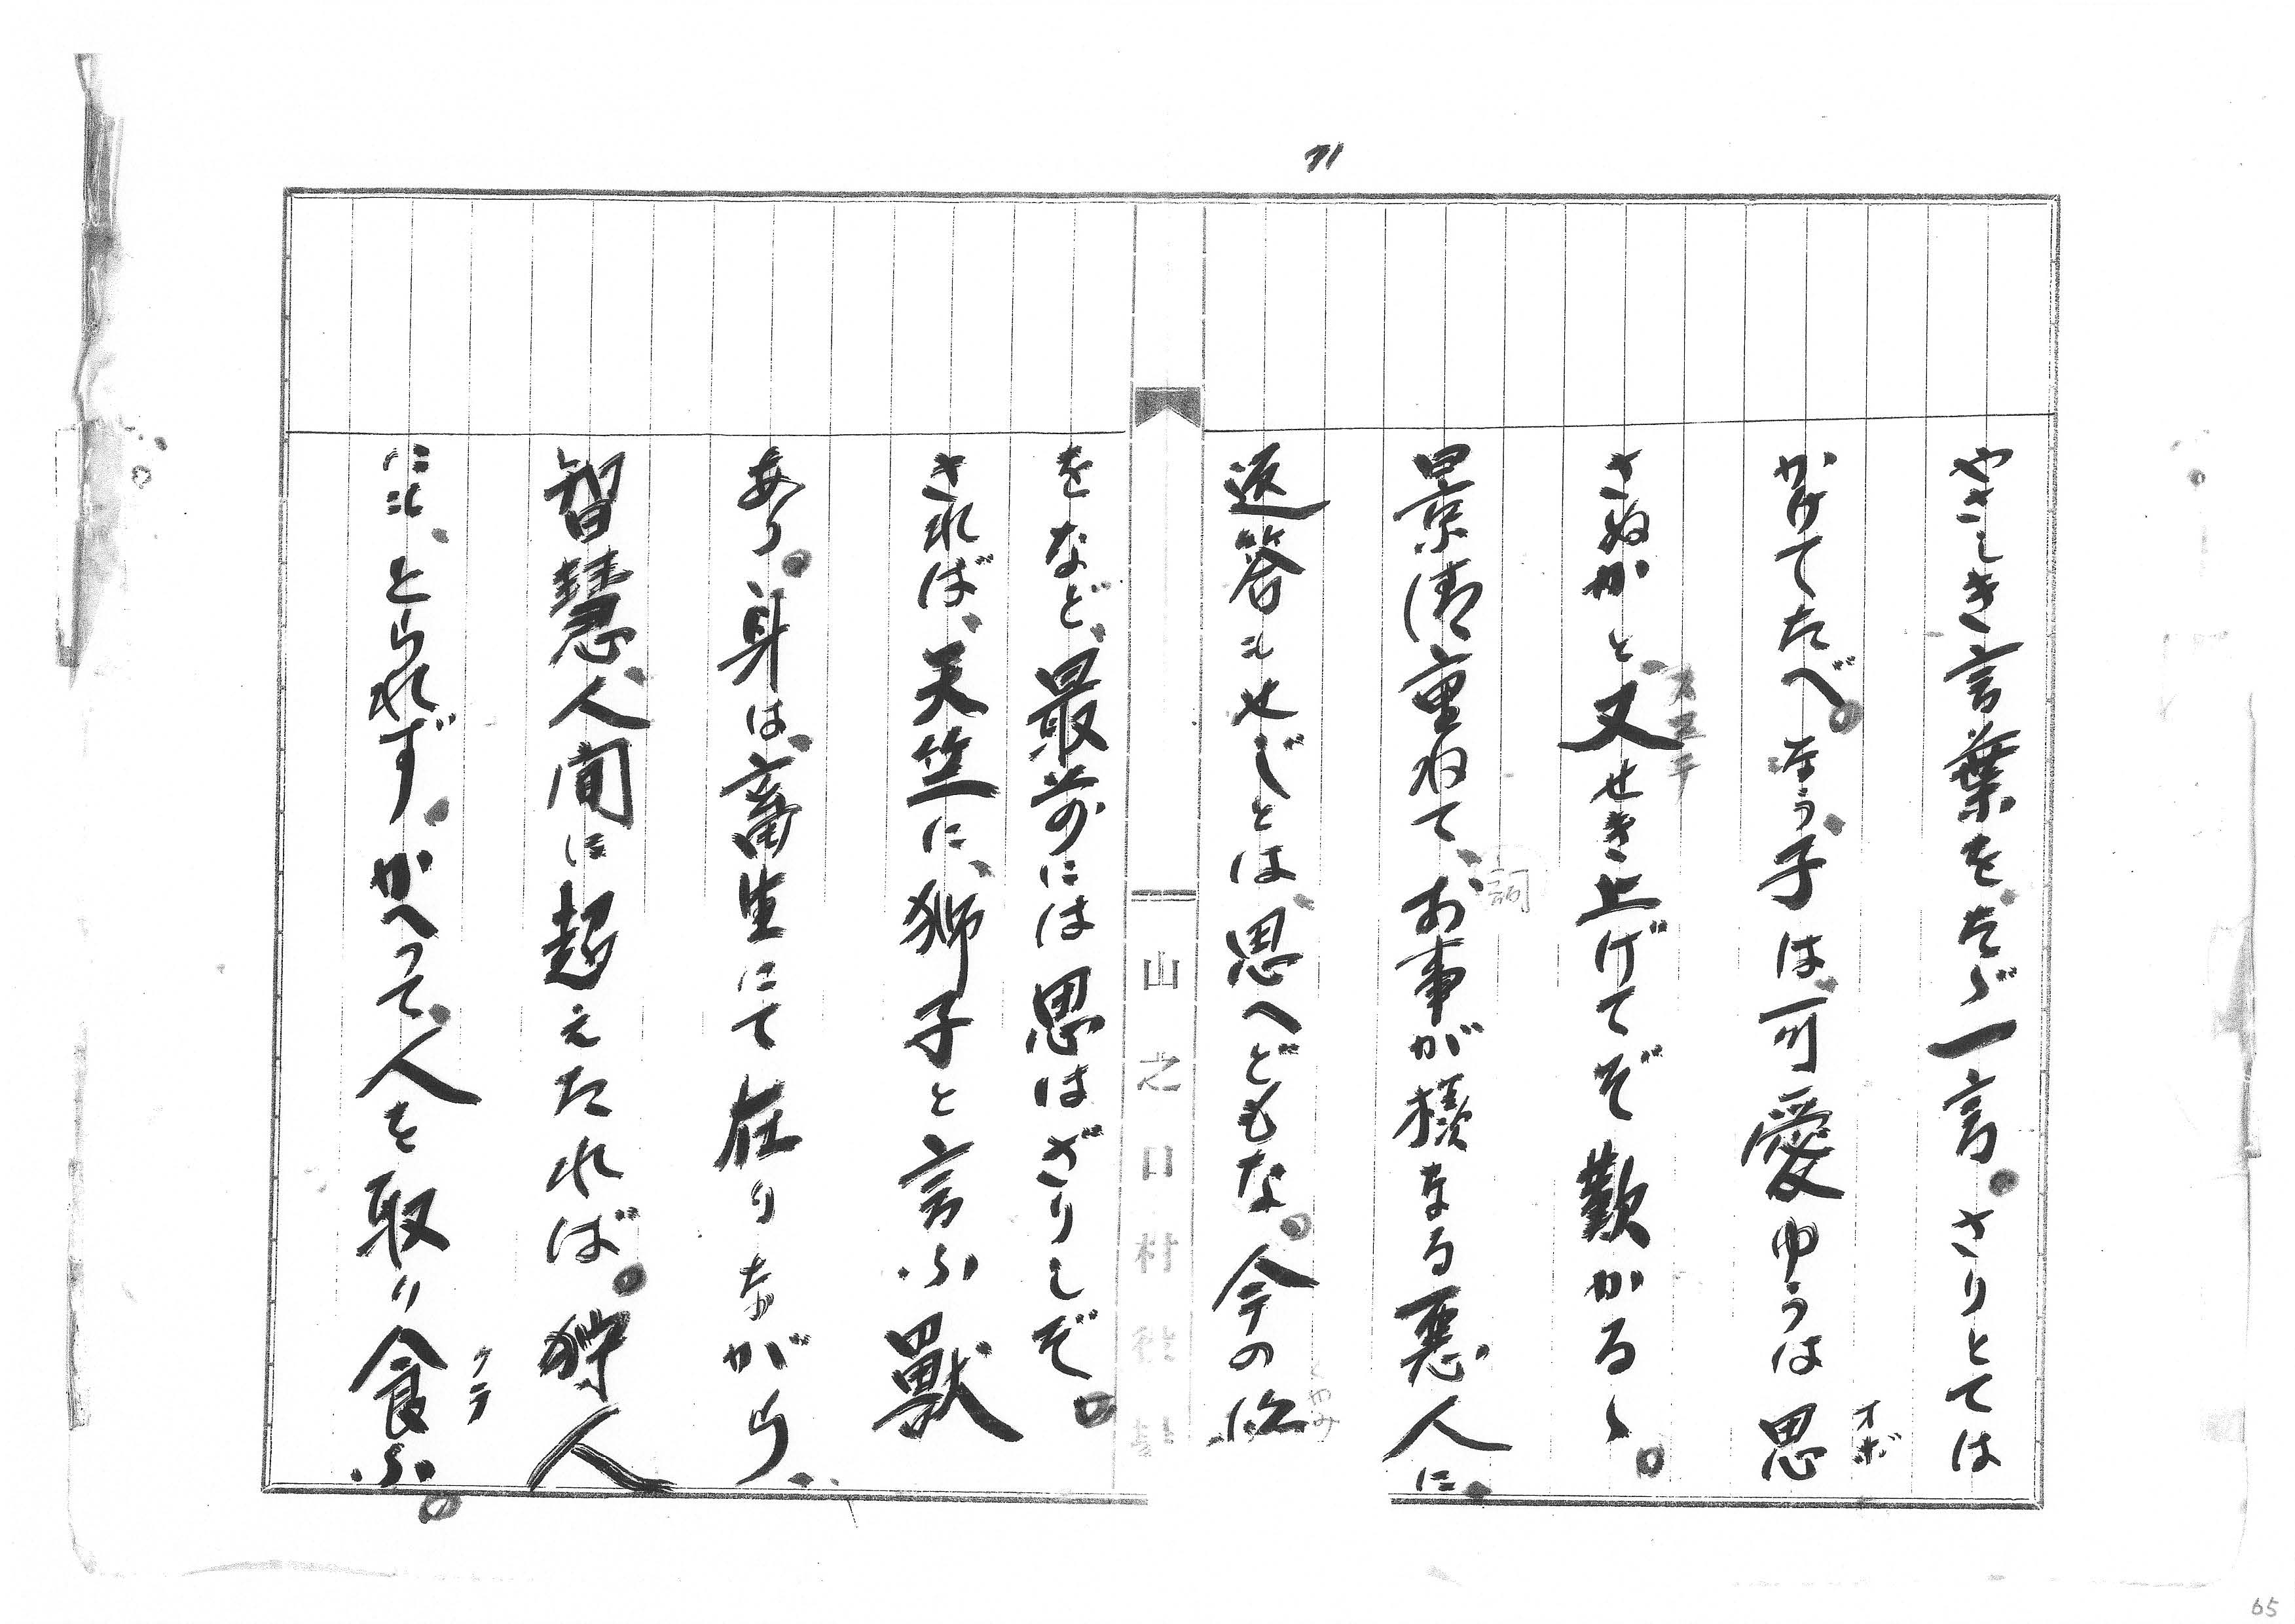 71
やさしき言葉を、たゞ一言。さりとては
かけてたべ。なう、子は、可愛ゆうは思
オボ
さぬかと、又せき上げてぞ歎かるゝ。
スヱテ
景清重ねて、お事が様なる悪人に、
詞
返答もせじとは、思へどもな。今の悩
くやみ
をなど、最前には思はざりしぞ。
されば、天竺に、獅子と言ふ獣
あり。身は、畜生にて在りながら、
智慧、人間に超えたれば。狩人
にも、とられず。かへって、人を取り食ふ。
クラ
山之口村
65